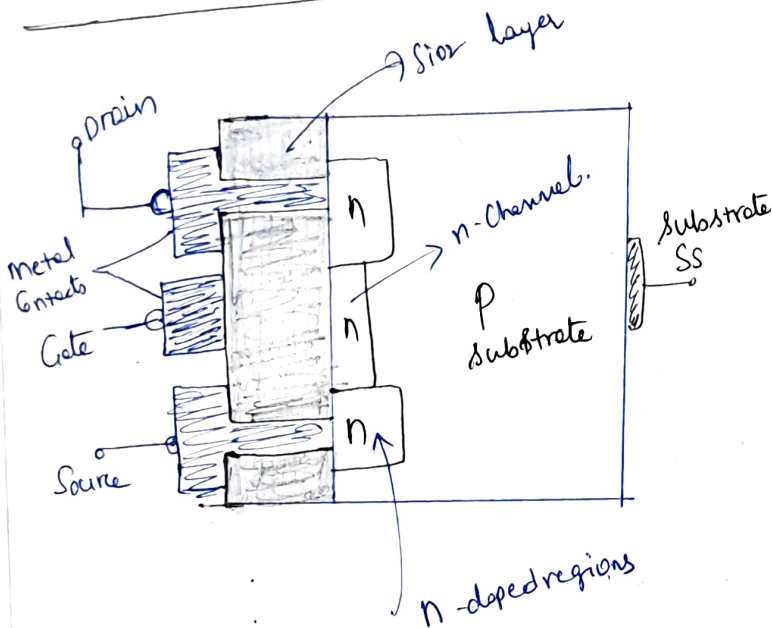 Sio2 layer
Drain
n
n-Channel.
Substrate
SS
Metal
Contacts
P
Substrate
n
Gate
n
Source
n-doped regions